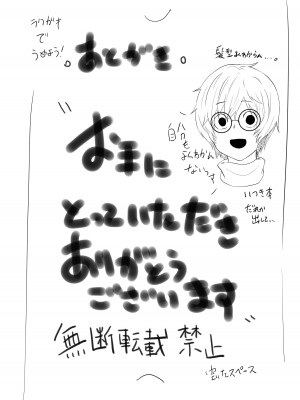 ラクガキ
で
うめよう!
。あとがき。
髪型よくわからん…。
お手に
自分も
よくわかんない
っす
とっていただき
ありがとう
ございます
いつき本
だれか
出して…
無断転載 禁止
空いたスペース